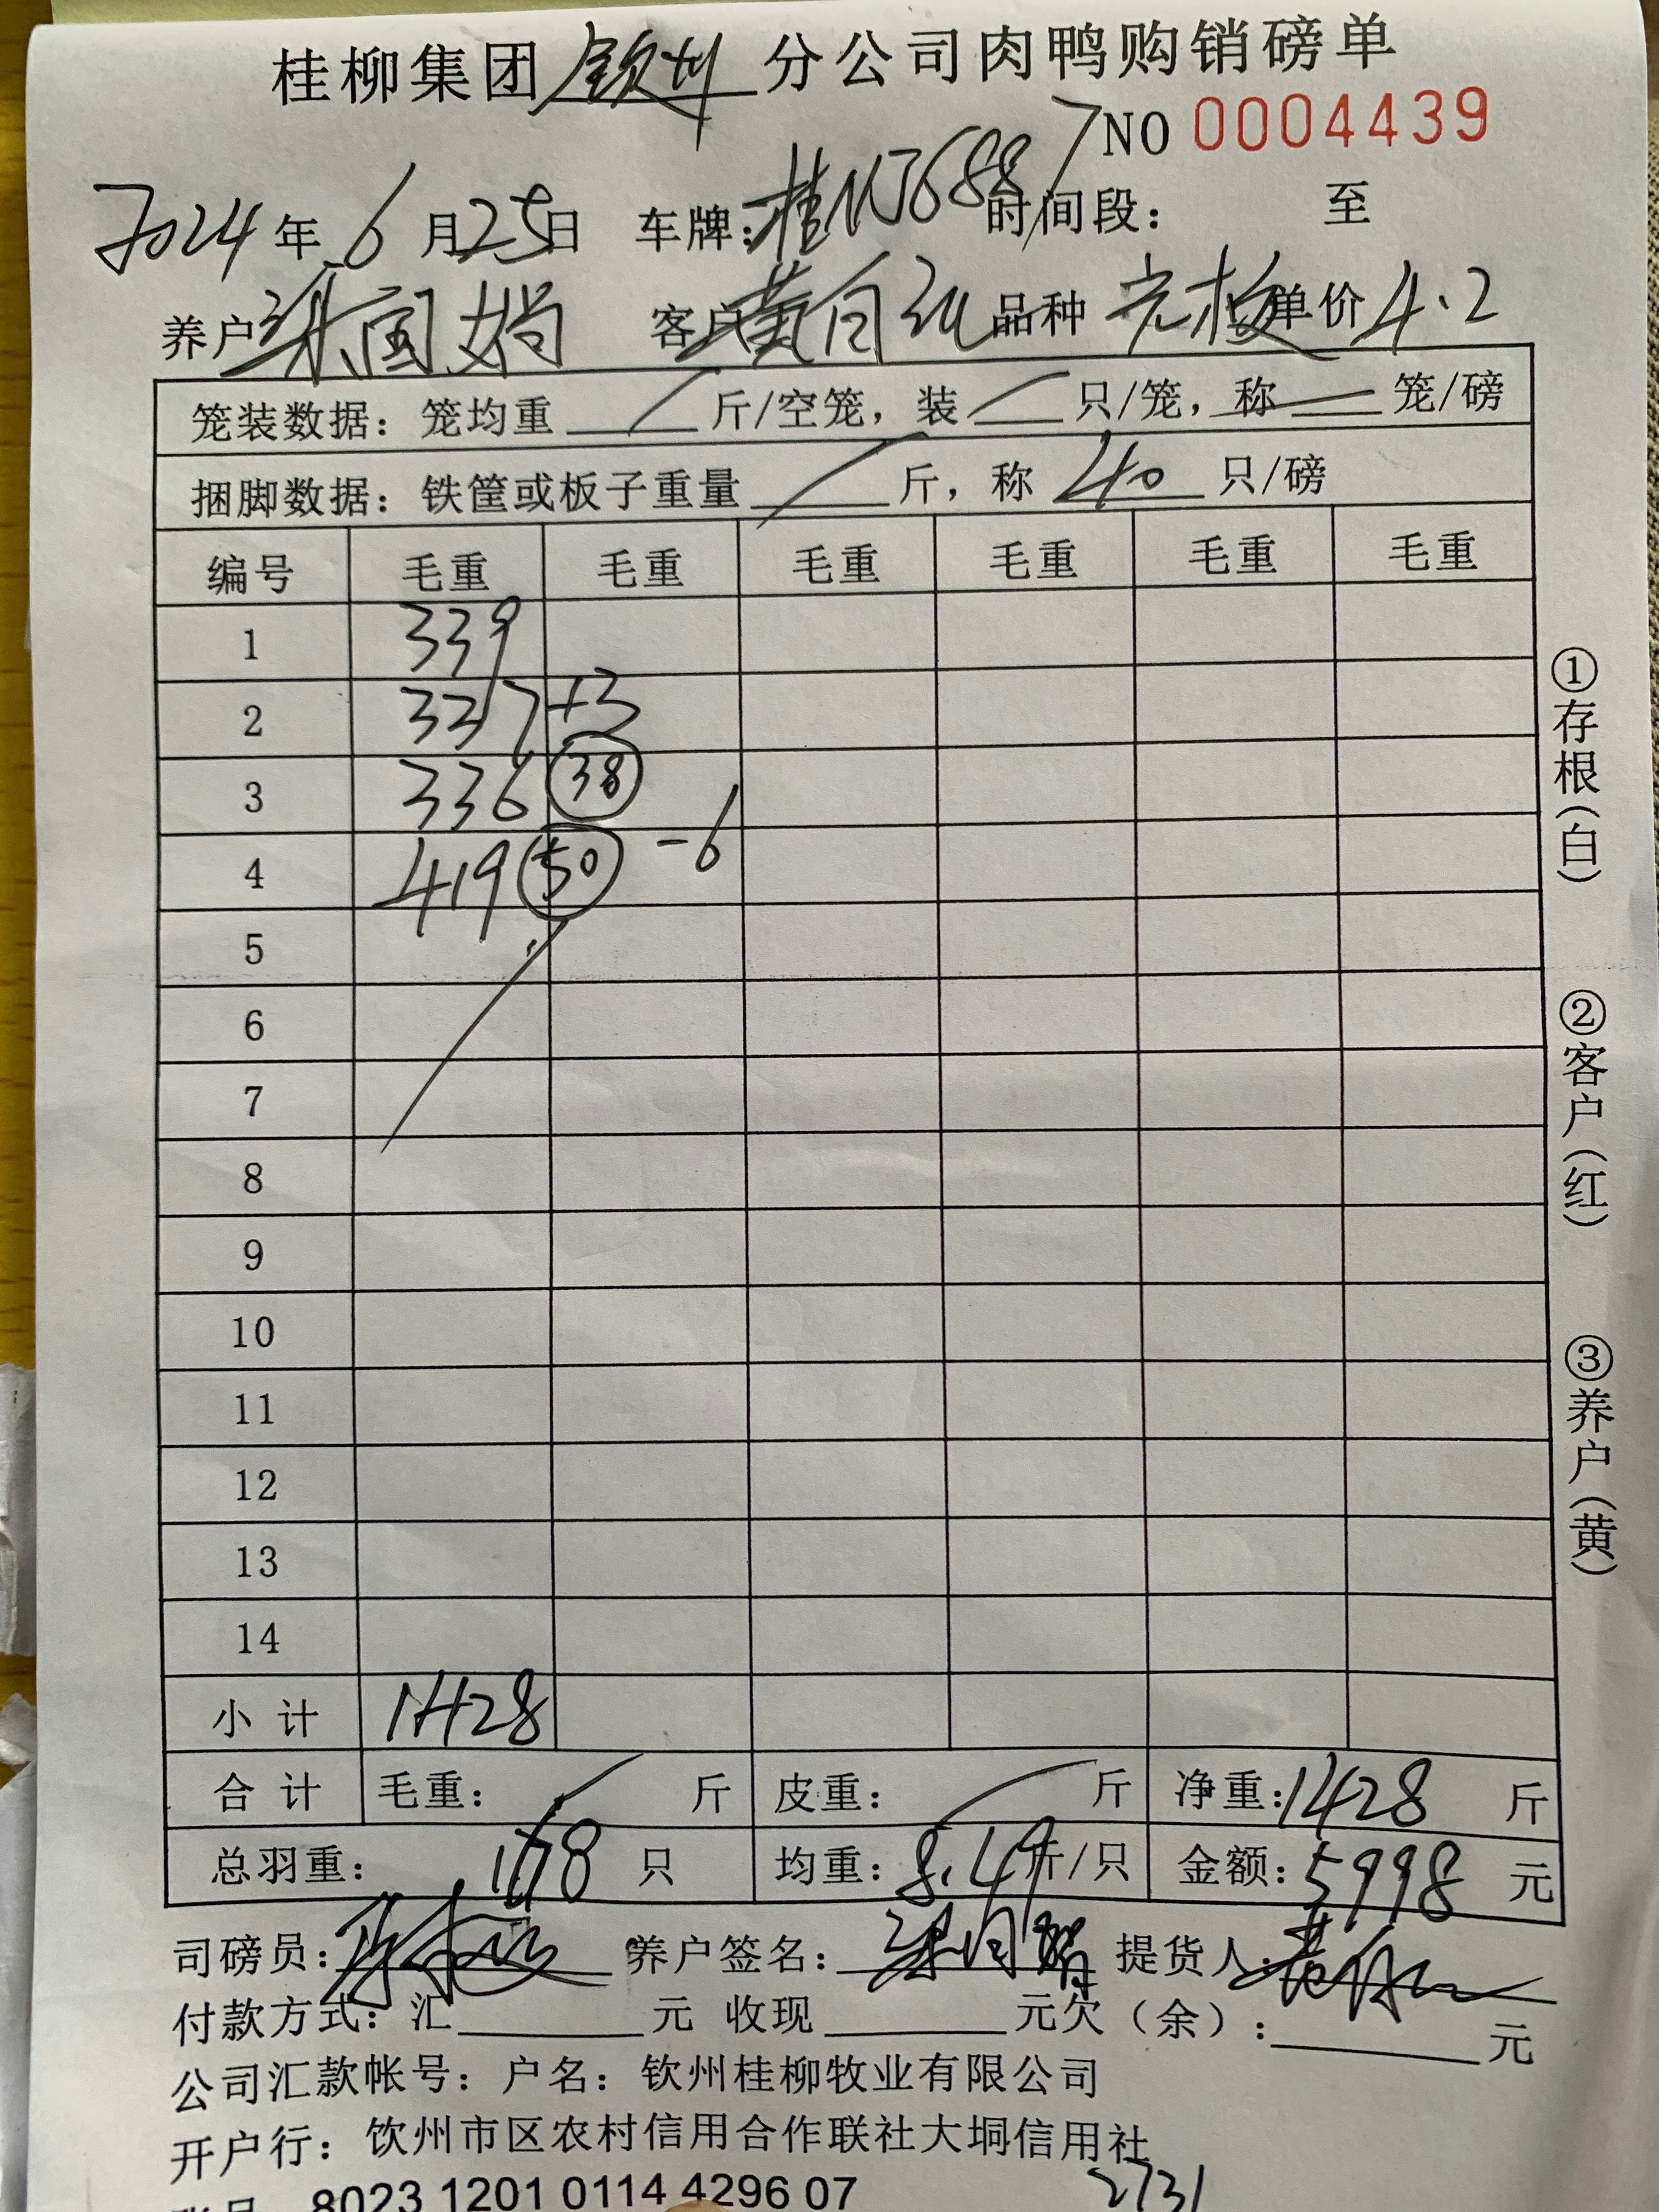 桂柳集团钦州分公司肉鸭购销磅单
NO 0004439
2024年6月25日 车牌:桂N J6887 时间段: 至
养户 梁国娟 客户 黄自 品种 单价 4.2
笼装数据: 笼均重 斤/空笼, 装 只/笼, 称 笼/磅
捆脚数据: 铁筐或板子重量 斤, 称 40 只/磅
编号 毛重 毛重 毛重 毛重 毛重 毛重
1 339
2 337 +3
3 336 38
4 419 50 -6
5
6
7
8
9
10
11
12
13
14
小计 1428
合计 毛重: 斤 皮重: 斤 净重:1428 斤
总羽重: 168 只 均重: 8.49 斤/只 金额: 5998 元
司磅员: 养户签名: 提货人:
付款方式: 汇 元 收现 元欠(余): 元
公司汇款帐号: 户名: 钦州桂柳牧业有限公司
开户行: 饮州市区农村信用合作联社大垌信用社
8023 1201 0114 4296 07
2731
①存根(白)
②客户(红)
③养户(黄)